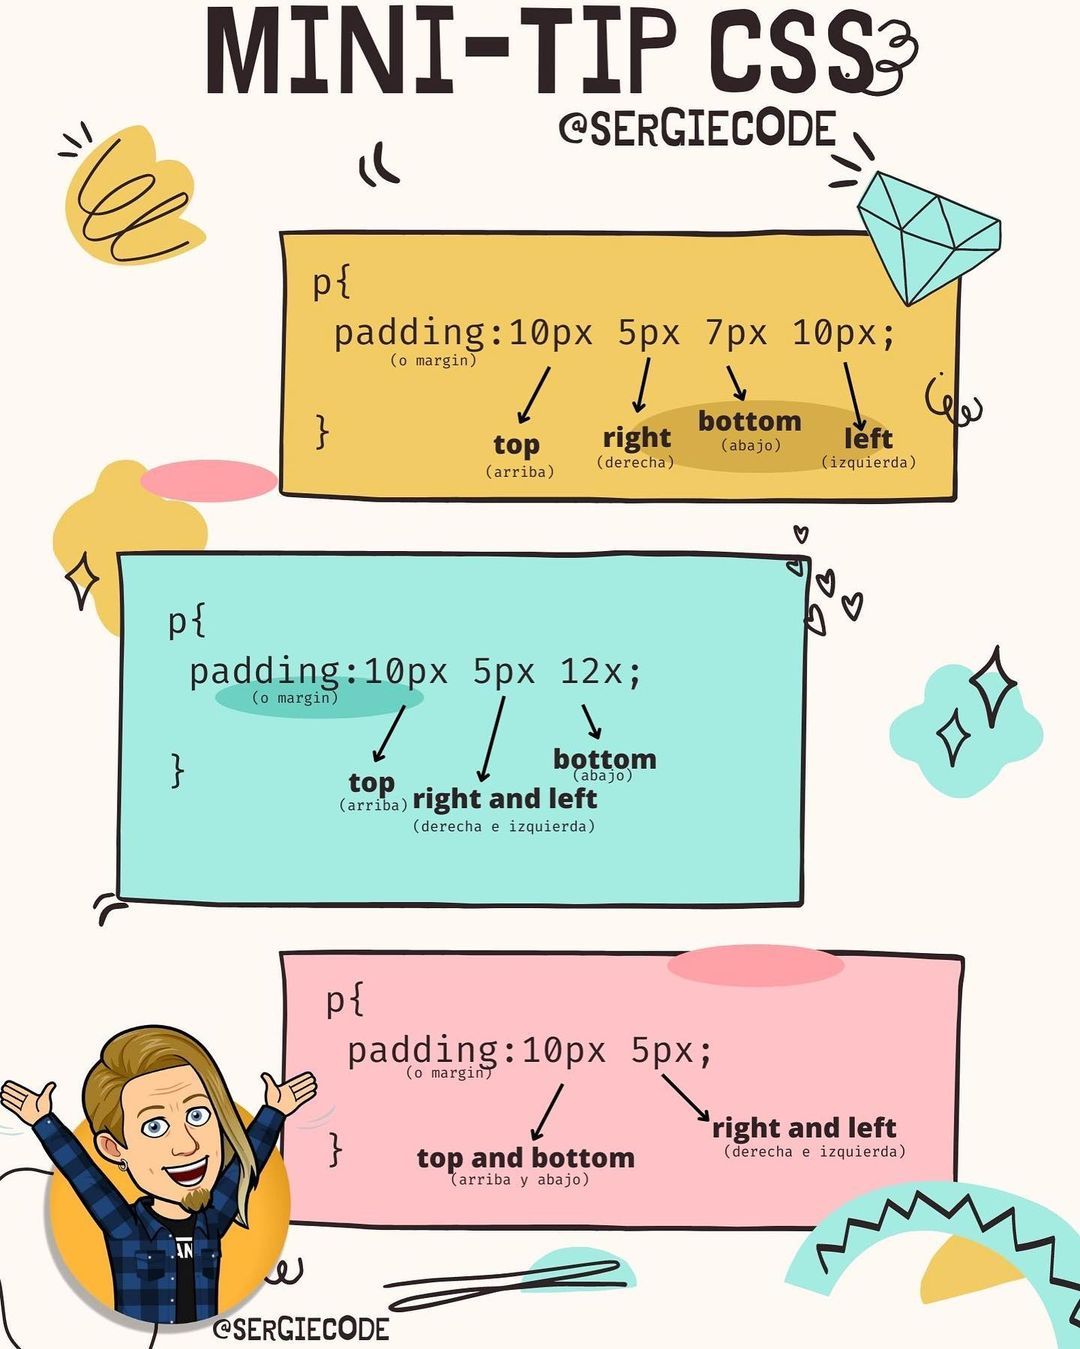 MINI-TIP CSS
@SERGIECODE
p{
padding:10px 5px 7px 10px;
(o margin)
top
(arriba)
right
(derecha)
bottom
(abajo)
left
(izquierda)
}
p{
padding:10px 5px 12x;
(o margin)
top
(arriba)
right and left
(derecha e izquierda)
bottom
(abajo)
}
p{
padding:10px 5px;
(o margin)
top and bottom
(arriba y abajo)
right and left
(derecha e izquierda)
}
AN
@SERGIECODE